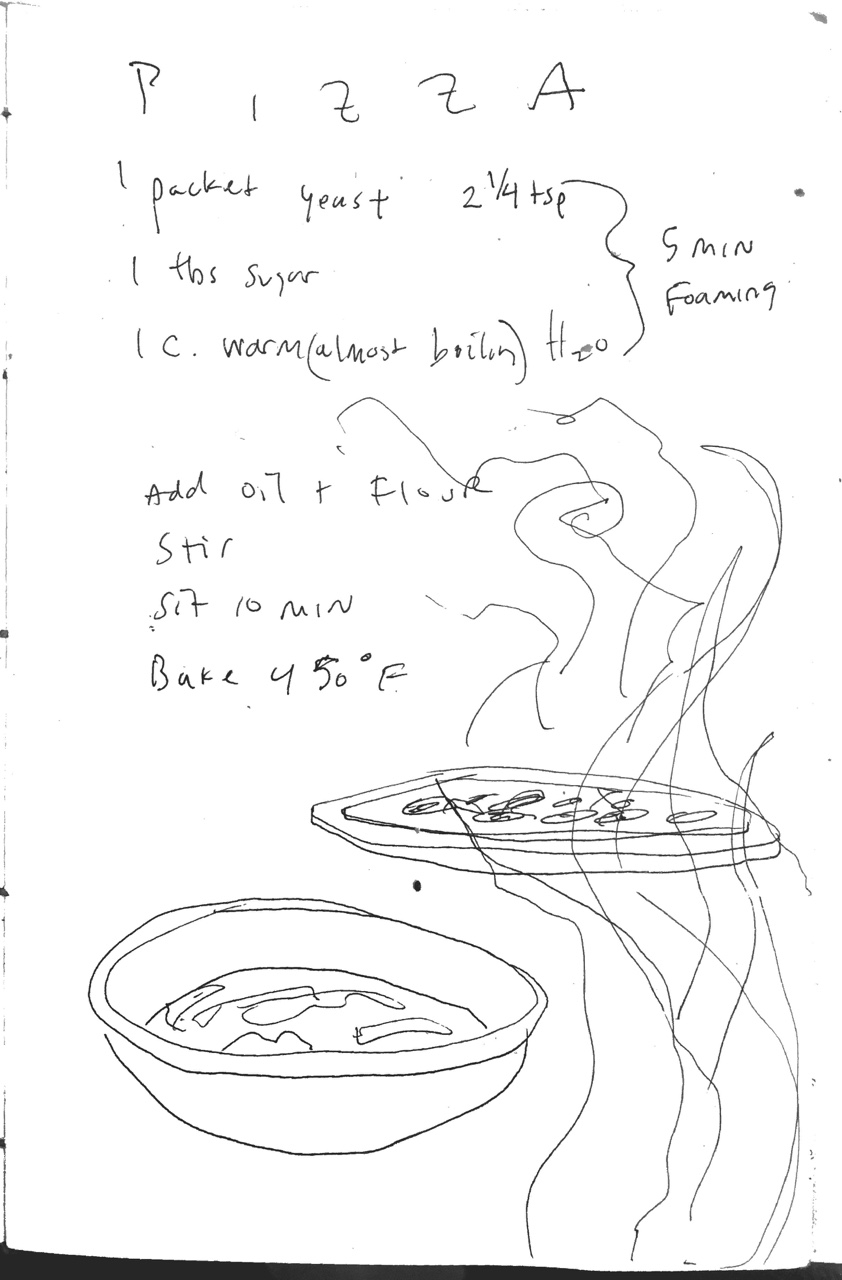 PIZZA
1 packet yeast 2 1/4 tsp
1 tbs sugar
1 c. warm (almost boilin) H2O
5 MIN
FOAMING
Add oil + Flour
Stir
Sit 10 MIN
Bake 450°F